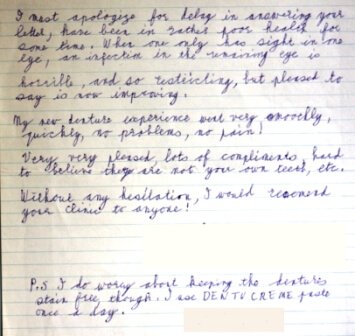 I must apologize for delay in answering your
letter, have been in rather poor health for
some time. When one only has sight in one
eye, an infection in the remaining eye is
horrible, and so restricting, but pleased to
say is now improving.
My new denture experience went very smoothly,
quickly, no problems, no pain!
Very very pleased, lots of compliments, hard
to believe they are not your own teeth, etc.
Without any hesitation, I would recomend
your clinic to anyone!
P.S I do worry about keeping the dentures
stain free, though. I use DENTU CREME paste
once a day.